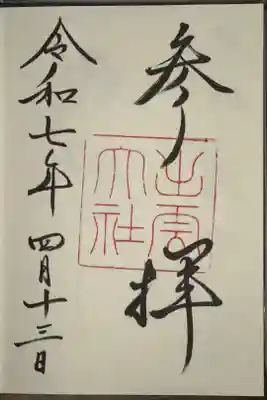 参拝
出雲
大社
令和七年 四月十三日